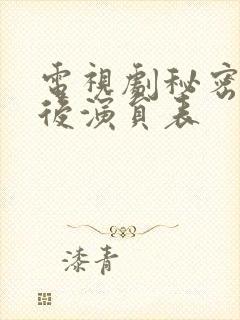 電視劇秘密
後演員表
漆青